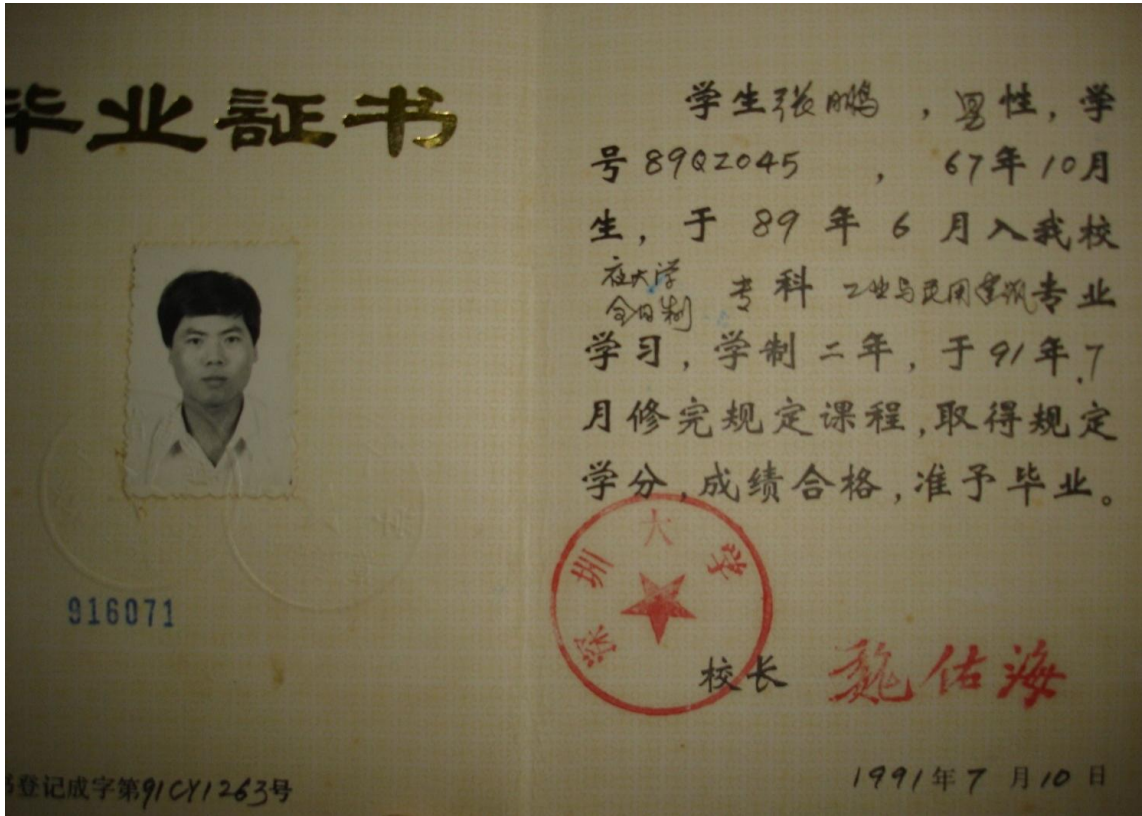 毕业証书
916071
书登记成字第91CY1263号
学生张鹏，男性，学
号89QZ045，67年10月
生，于89年6月入我校
夜大学
全日制
专科 工业与民用建筑专业
学习，学制二年，于91年7
月修完规定课程，取得规定
学分，成绩合格，准予毕业。
深圳大学
校长 魏佑海
1991年7月10日